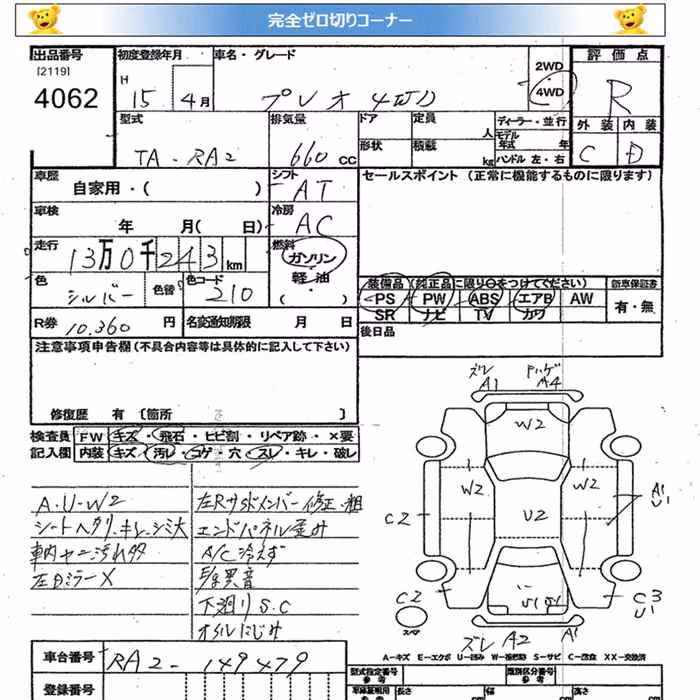 完全ゼロ切りコーナー
出品番号
[2119]
4062
初度登録年月
H 15 年 4月
車名・グレード
プレオ 4WD
2WD
4WD
評価点
R
外装 内装
C D
型式
TA-RA2
排気量
660 cc
ドア
形状
定員 人
積載 kg
ディーラー・並行
モデル年式 年
ハンドル 左・右
車歴
自家用・( )
シフト
AT
セールスポイント (正常に機能するものに限ります)
車検
年 月( 日)
冷房
AC
走行
13万0千243 km
燃料
ガソリン・
軽油
( )
色
シルバー
色替
色コード
210
装備品 (純正品に限り○をつけてください)
新車保証書
PS PW ABS エアB AW
SR ナビ TV カワ
有・無
R券 10,360 円
名変通知期限 月 日
後日品
注意事項申告欄(不具合内容等は具体的に記入して下さい)
修復歴 有〔箇所 〕
検査員 FW キズ・飛石・ヒビ割・リペア跡・×要
記入欄 内装 キズ・汚レ・コゲ・穴・スレ・キレ・破レ
A・U・W2
シートヘタリ、キレ、シミ大
車内ヤニ汚れ多
左Dミラー×
左Rサイドメンバー修正・粗
エンドパネル歪み
A/C冷えず
異音
下廻りS.C
オイルにじみ
ズレ
A1
ハゲ
A4
W2
W2
W2
A1
U1
C2
U2
C2
C3
U1
スペア
ズレ A2
A1
A-キズ E-エクボ U-凹み W-補修跡 S-サビ C-腐食 XX-交換済
車台番号
RA2-149479
登録番号
型式指定番号
参考
類別区分番号
参考
車線証明用
参考
長さ
cm
幅
cm
高さ
cm